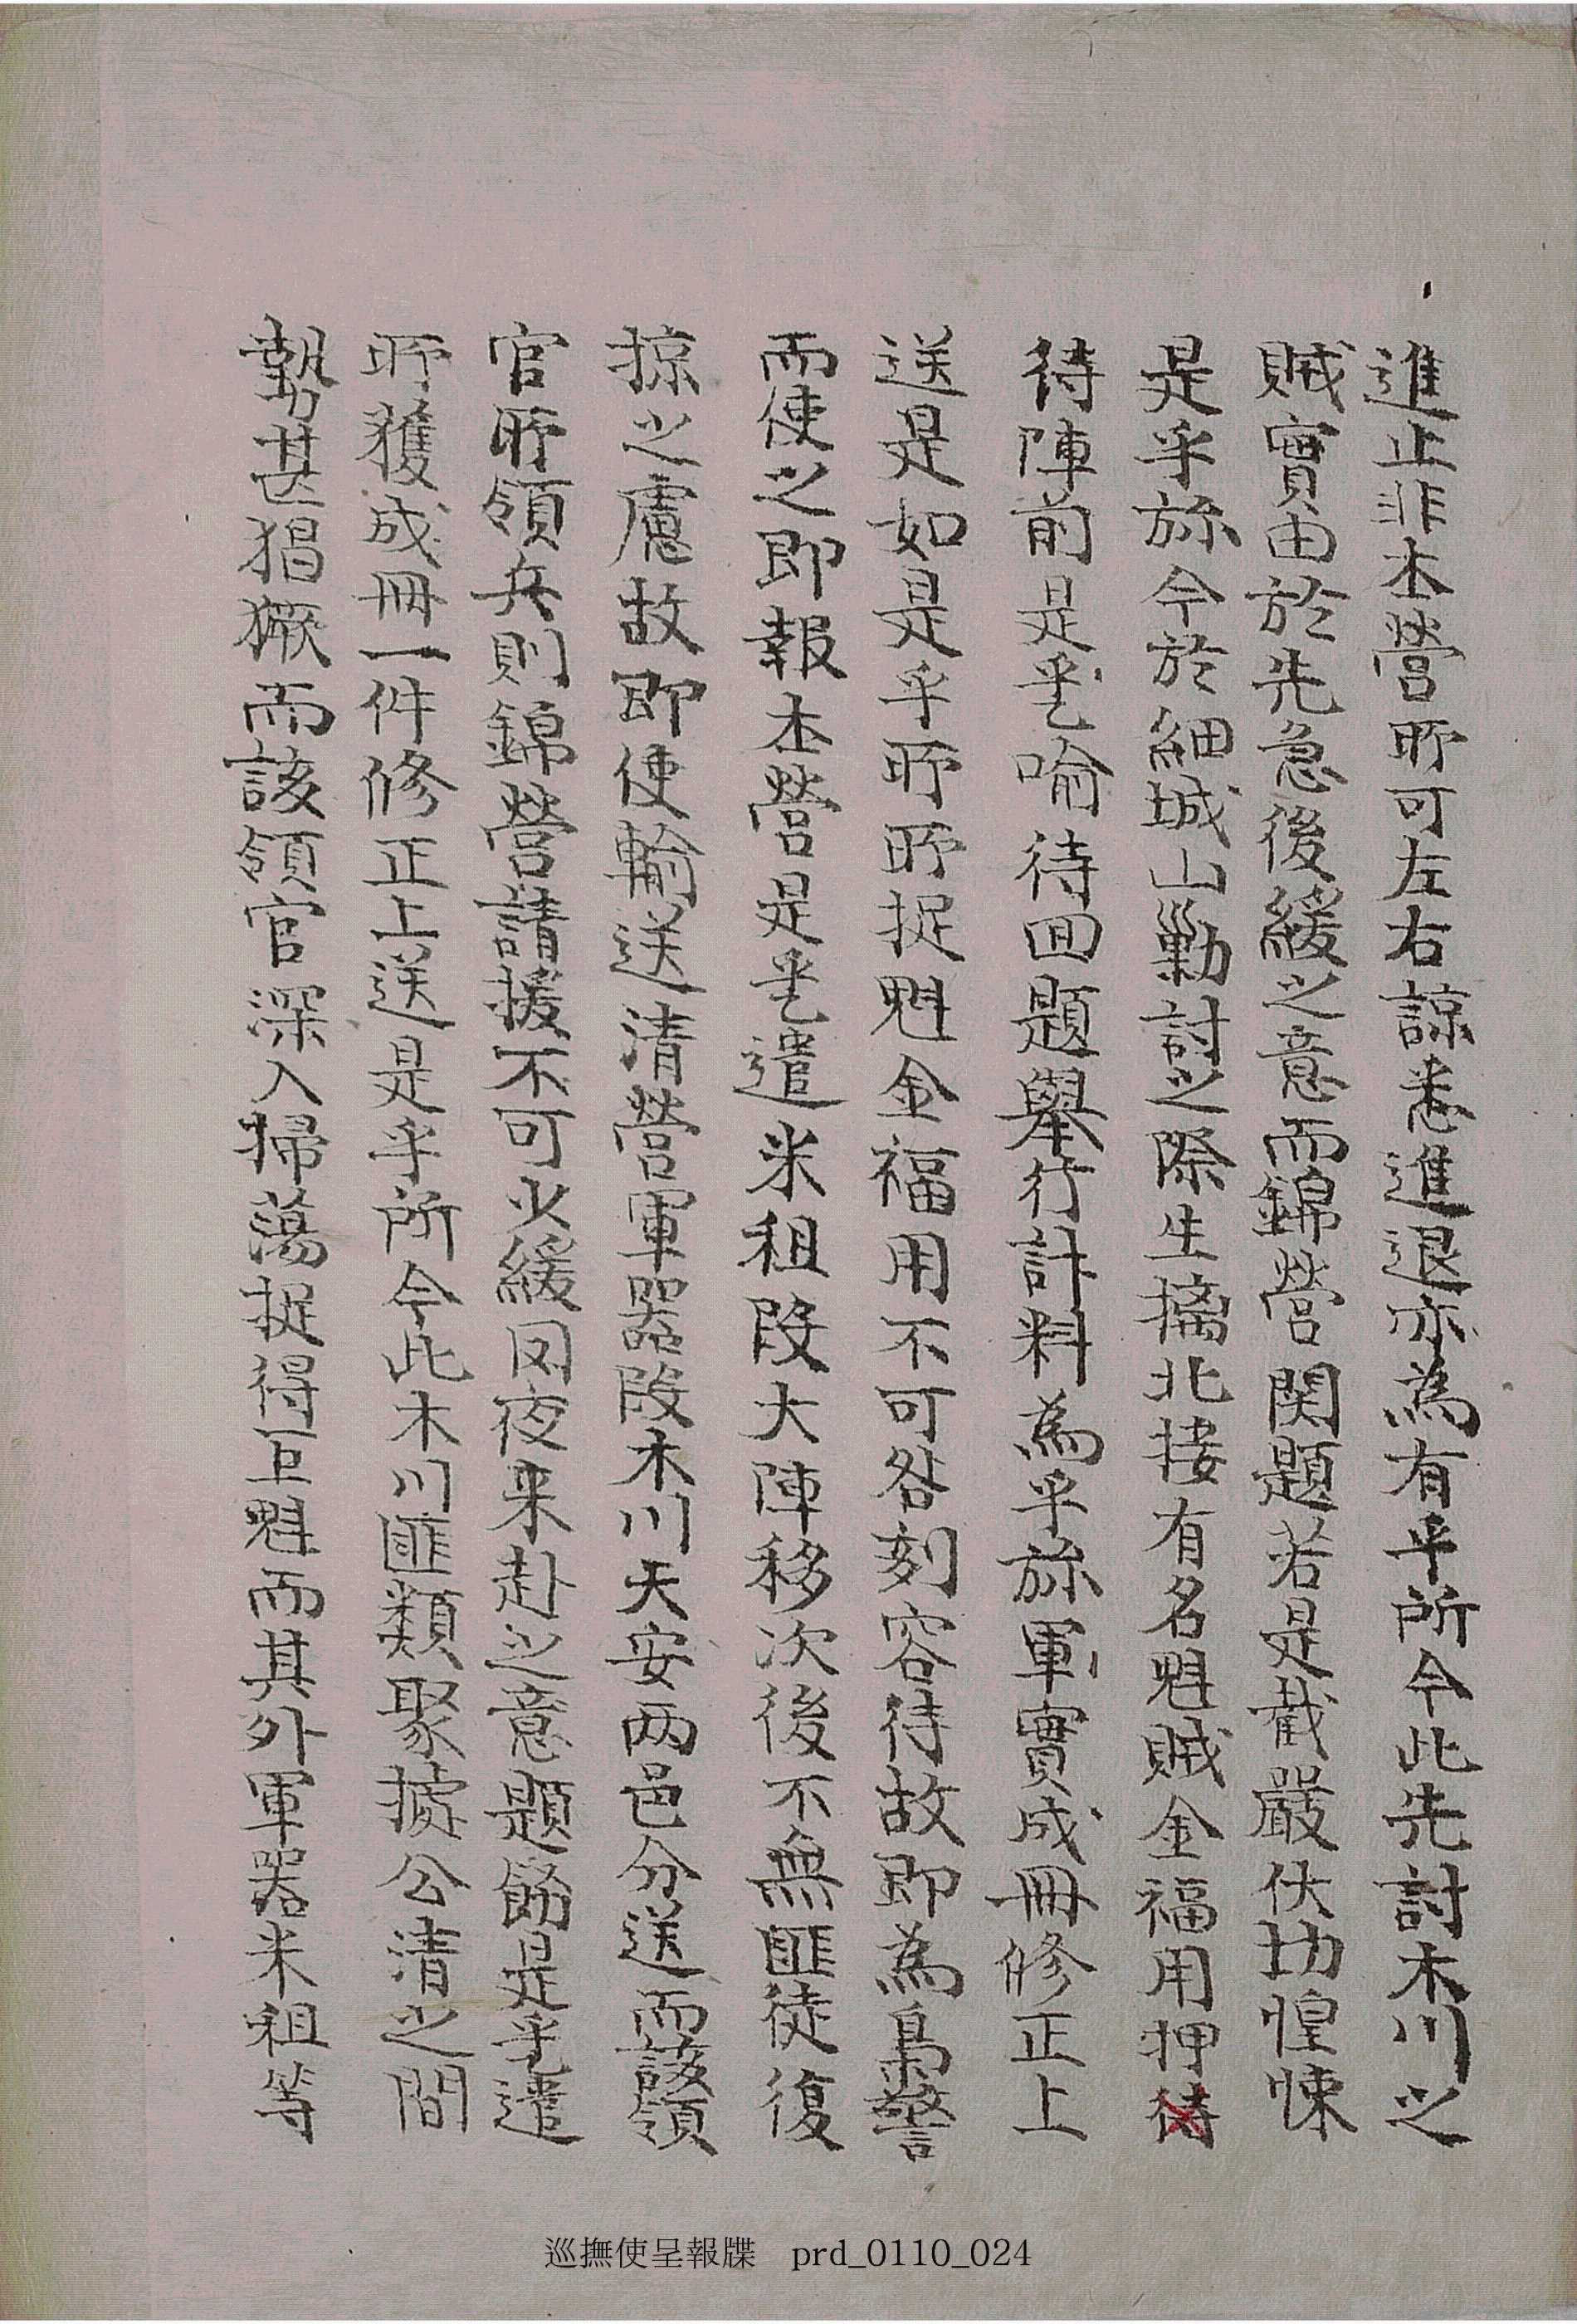 進止非本營所可左右諒悉進退亦爲有乎所今此先討木川之
賊實由於先急後緩之意而錦營関題若是截嚴伏切惶悚
是乎旀今於細城山勦討之際生擒北接有名魁賊金福用押待
待陣前是乎乙喻待回題擧行計料爲乎旀軍實成冊修正上
送是如是乎所所捉魁金福用不可晷刻容待故即爲梟警
而使之即報本營是乎乙遣米租段大陣移次後不無匪徒復
掠之慮故即使輸送清營軍器段木川天安两邑分送而該領
官所領兵則錦營請援不可少緩罔夜来赴之意題飭是乎乙遣
所獲成冊一件修正上送是乎所今此木川匪類聚據公清之間
勢甚猖獗而該領官深入掃蕩捉得巨魁而其外軍器米租等
巡撫使呈報牒 prd_0110_024